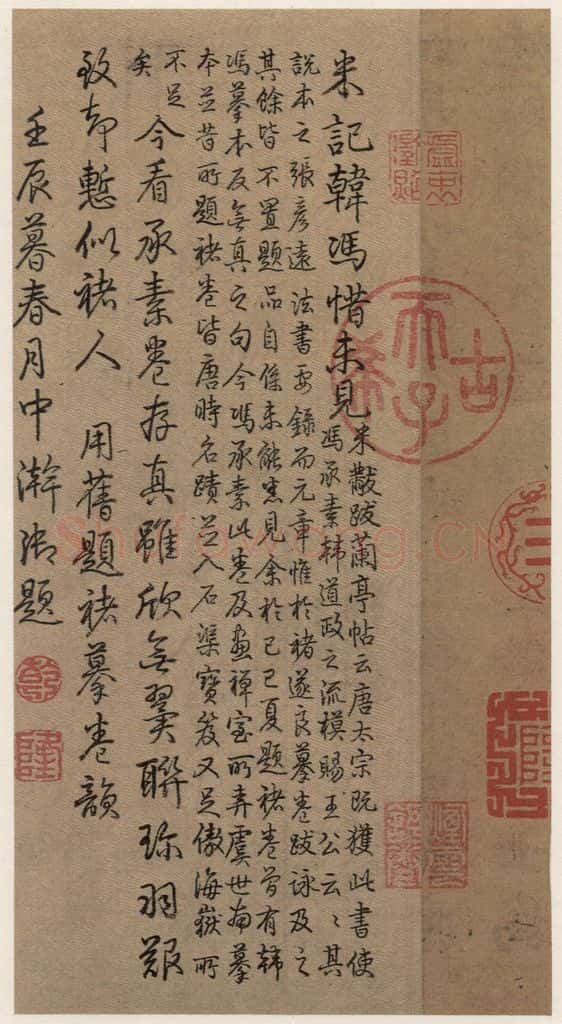 米記韓馮惜未見
米黻跋蘭亭帖云唐太宗既獲此書使
馮承素韓道政之流模賜王公云云其
說本之張彥遠法書要錄而元章惟於褚遂良摹卷跋詠及之
其餘皆不置題品自係未能悉見余於己巳夏題褚卷曾有韓
馮摹本反無真之句今馮承素此卷及畫禪室所弆虞世南摹
本並昔所題褚卷皆唐時名蹟並入石渠寶笈又足傲海嶽所
不足
矣
今看承素卷存真雖欣無翼聯珎羽艱
致却慙似褚人 用舊題褚摹卷韻
壬辰暮春月中澣御題
乾
隆
古希天子
三